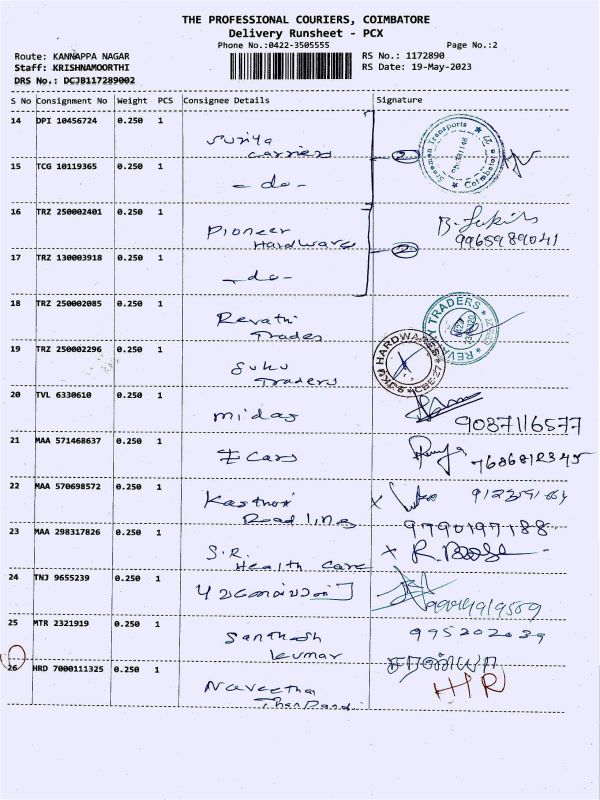 THE PROFESSIONAL COURIERS, COIMBATORE
Delivery Runsheet - PCX
Phone No.:0422-3505555 Page No.:2
Route: KANNAPPA NAGAR RS No.: 1172890
Staff: KRISHNAMOORTHI RS Date: 19-May-2023
DRS No.: DCJB117289002
S No Consignment No Weight PCS Consignee Details Signature
14 DPI 10456724 0.250 1
Suriya
Carriers
Sreeman Transports
Coimbatore
2
15 TCG 10119365 0.250 1
- do -
16 TRZ 250002401 0.250 1
Pioneer
Hardware
9965989041
2
17 TRZ 130003918 0.250 1
- do -
18 TRZ 250002085 0.250 1
Revathi
Trades
TRADERS
19 TRZ 250002296 0.250 1
Suku
Traders
HARDWARES
CBE-27
20 TVL 6330610 0.250 1
midas
9087116577
21 MAA 571468637 0.250 1
Cars
7686812345
22 MAA 570698572 0.250 1
Kasthori
Road lines
23 MAA 298317826 0.250 1
9790197188
S.R.
Health Care
x R.
24 TNJ 9655239 0.250 1
25 MTR 2321919 0.250 1
Santhosh
Kumar
995202039
26 HRD 7000111325 0.250 1
சரண்யா
Naveetha
H/R